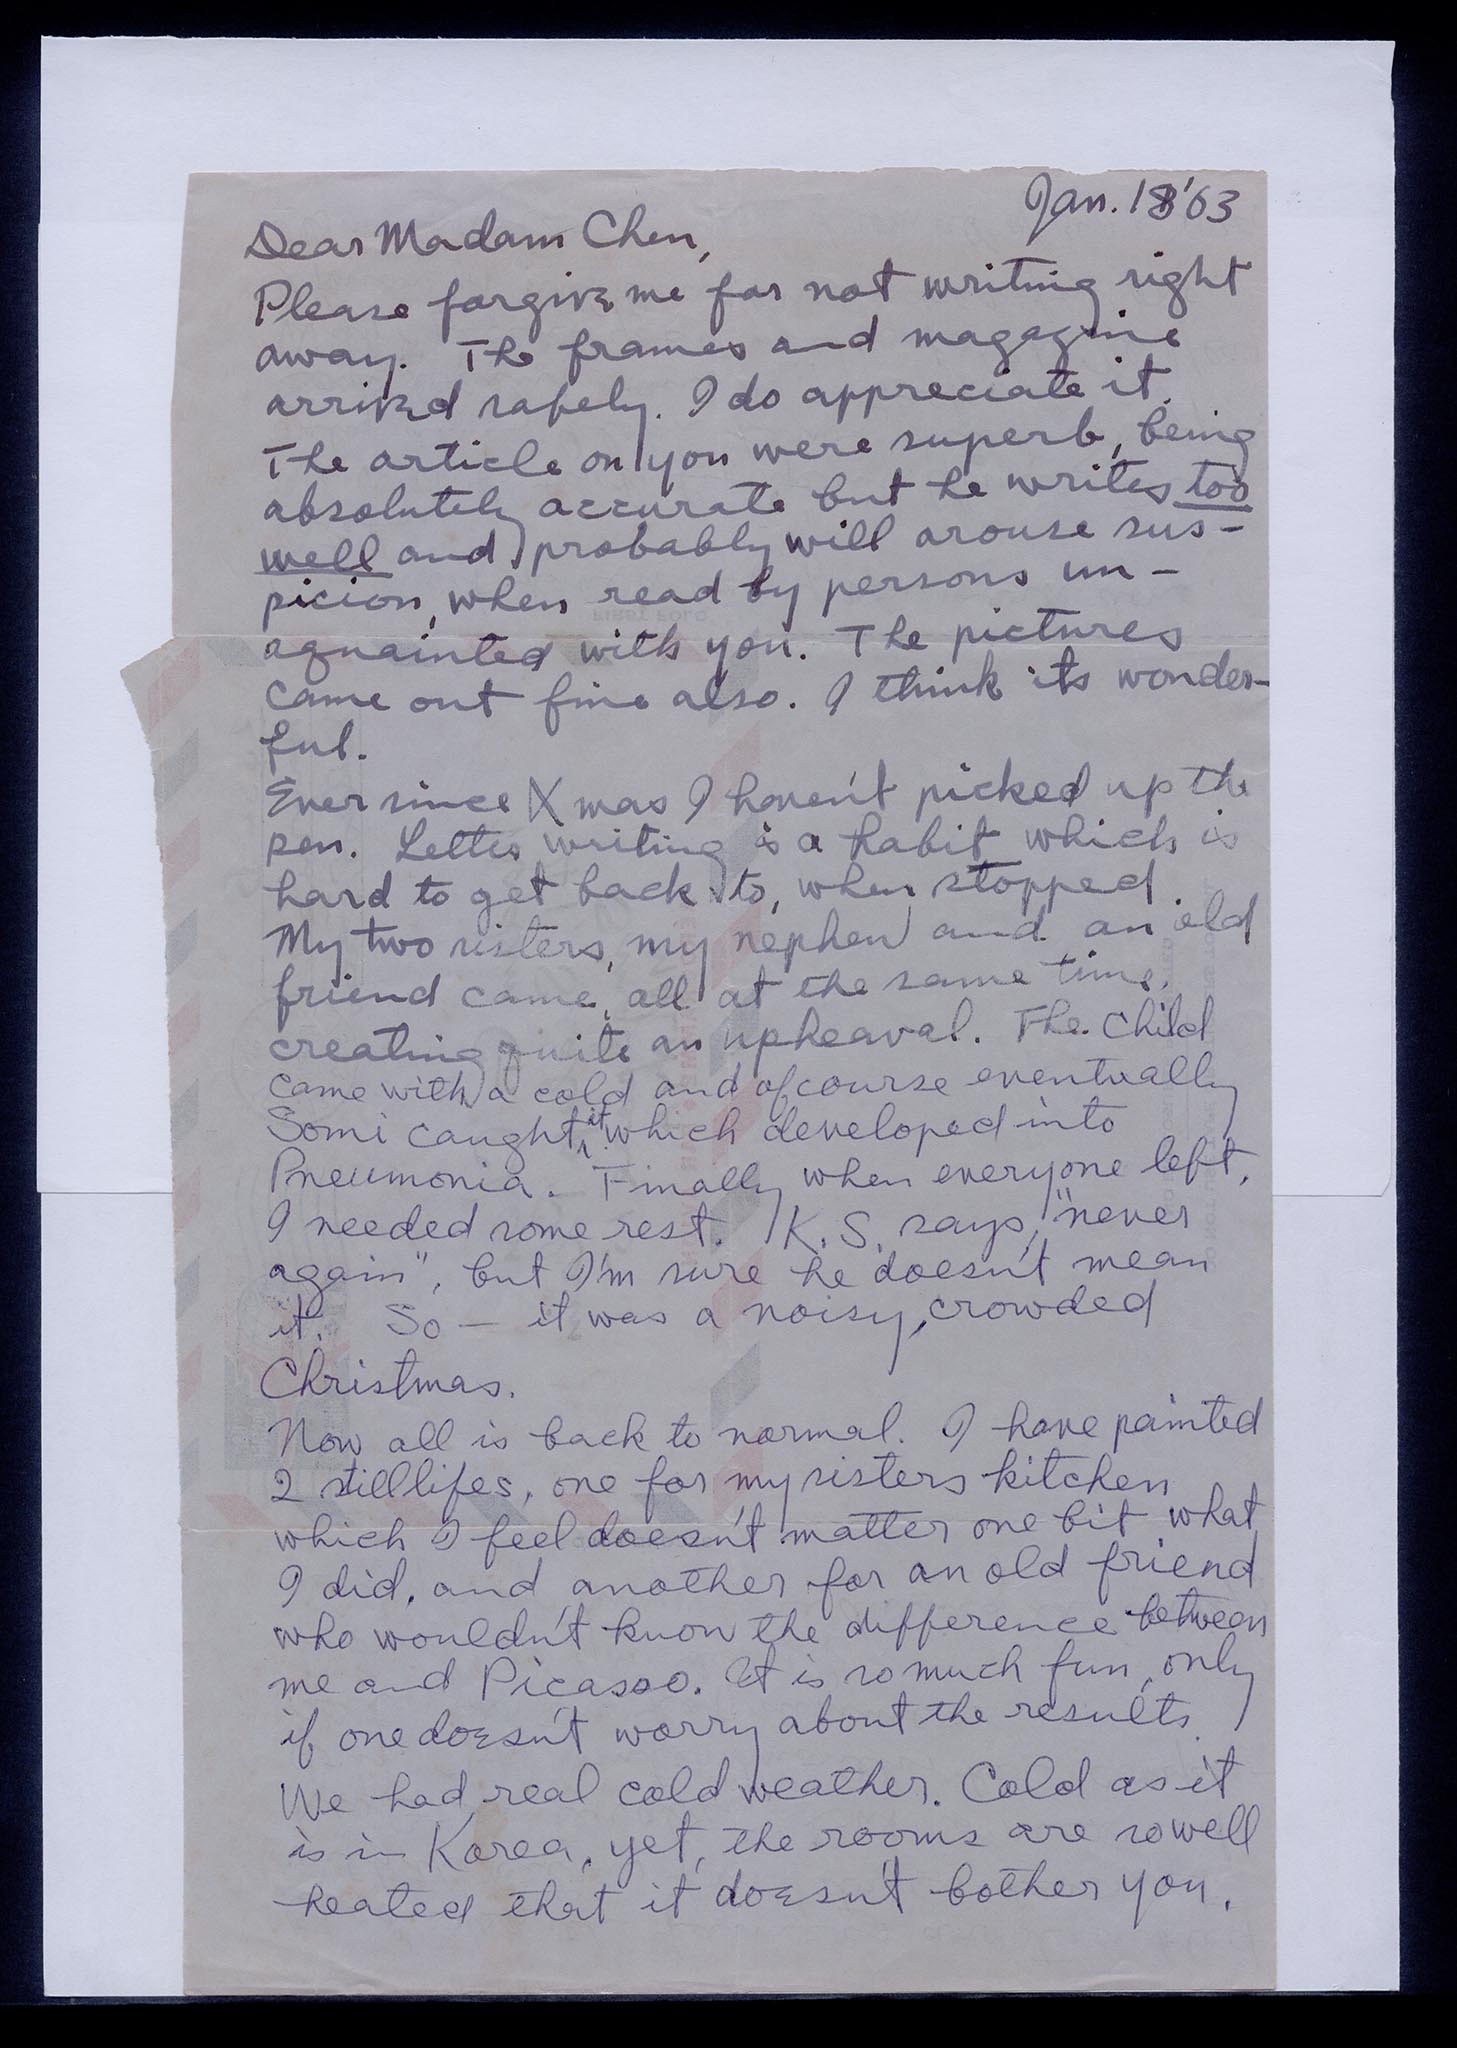 Jan. 18 '63
Dear Madam Chen,
Please forgive me for not writing right
away. The frames and magazine
arrived safely. I do appreciate it.
The article on you were superb, being
absolutely accurate but he writes too
well and probably will arouse sus-
picion, when read by persons un-
aquainted with you. The pictures
came out fine also. I think its wonder-
ful.
Ever since Xmas I haven't picked up the
pen. Letter writing is a habit which is
hard to get back to, when stopped
My two sisters, my nephew and an old
friend came, all at the same time,
creating quite an upheaval. The child
came with a cold and ofcourse eventually
Somi caught it which developed into
Pneumonia. Finally when everyone left,
I needed some rest. K.S. says, "never
again", but I'm sure he doesn't mean
it. So — it was a noisy, crowded
Christmas.
Now all is back to normal. I have painted
2 still lifes, one for my sisters kitchen
which I feel doesn't matter one bit what
I did, and another for an old friend
who wouldn't know the difference between
me and Picasso. It is so much fun, only
if one doesn't worry about the results.
We had real cold weather. Cold as it
is in Korea, yet, the rooms are so well
heated that it doesn't bother you.